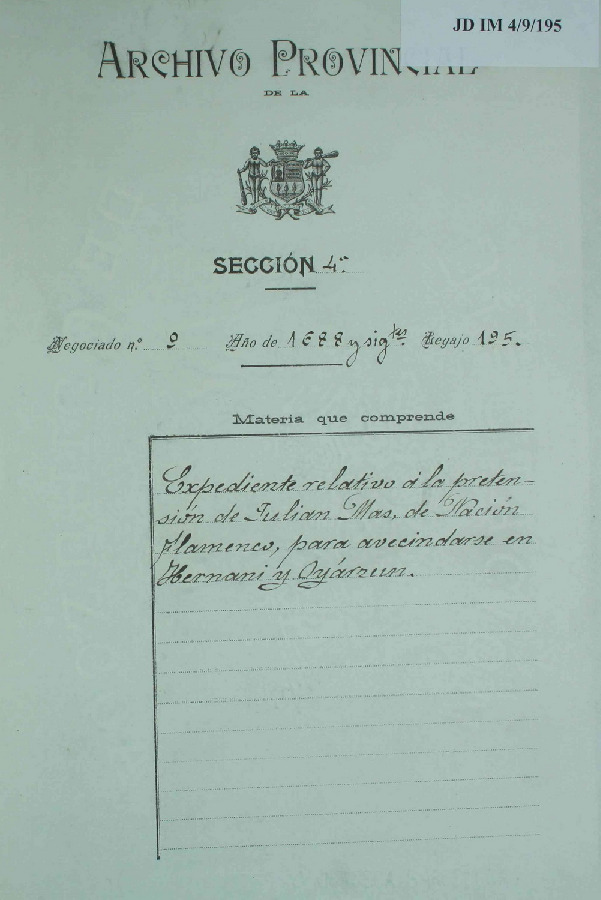 JD IM 4/9/195
ARCHIVO PROVINCIAL
DE LA
SECCIÓN 4ª
Negociado n.º 9 Año de 1688 y sigtes. Legajo 195.
Materia que comprende
Expediente relativo á la preten-
sión de Julian Mas, de Nación
Flamenco, para avecindarse en
Hernani y Oyárzun.